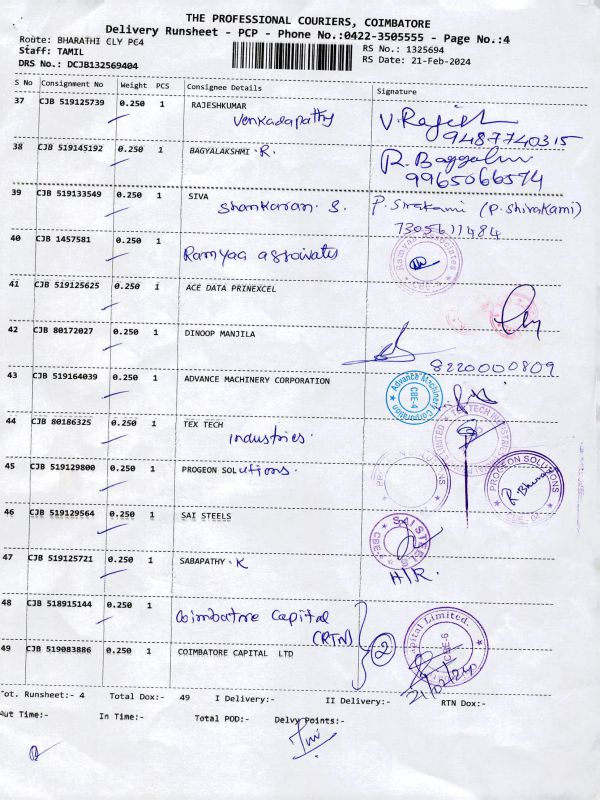 THE PROFESSIONAL COURIERS, COIMBATORE
Delivery Runsheet - PCP - Phone No.:0422-3505555 - Page No.:4
Route: BHARATHI CLY PC4
RS No.: 1325694
Staff: TAMIL
RS Date: 21-Feb-2024
DRS No.: DCJB132569404
S No Consignment No Weight PCS Consignee Details Signature
37 CJB 519125739 0.250 1 RAJESHKUMAR V. Rajesh
Venkadapathy 9487740315
38 CJB 519145192 0.250 1 BAGYALAKSHMI .R.
9965066574
39 CJB 519133549 0.250 1 SIVA P. Sirakami (P. Shirakami)
Shankaran. S. 7305611484
40 CJB 1457581 0.250 1
Ramyaa
41 CJB 519125625 0.250 1 ACE DATA PRINEXCEL
42 CJB 80172027 0.250 1 DINOOP MANJILA
8220000809
43 CJB 519164039 0.250 1 ADVANCE MACHINERY CORPORATION
Advance Machinery Corporation CBE-4
44 CJB 80186325 0.250 1 TEX TECH
industries.
45 CJB 519129800 0.250 1 PROGEON SOLutions.
PROGEON SOLUTIONS
46 CJB 519129564 0.250 1 SAI STEELS
SAI STEELS
47 CJB 519125721 0.250 1 SABAPATHY . K
H/R.
48 CJB 518915144 0.250 1 Coimbatore Capital
(CRTN)
2
49 CJB 519083886 0.250 1 COIMBATORE CAPITAL LTD
ot. Runsheet:- 4 Total Dox:- 49 I Delivery:- II Delivery:- RTN Dox:-
ut Time:- In Time:- Total POD:- Delvy Points:-